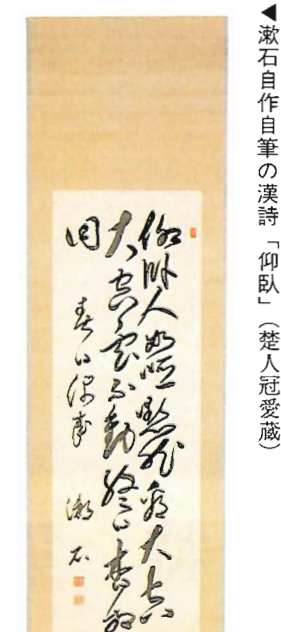 ◀漱石自作自筆の漢詩「仰臥」(楚人冠愛蔵)
仰臥人如啞黙然看大空
大空雲不動終日杳相
同
春日
漱石